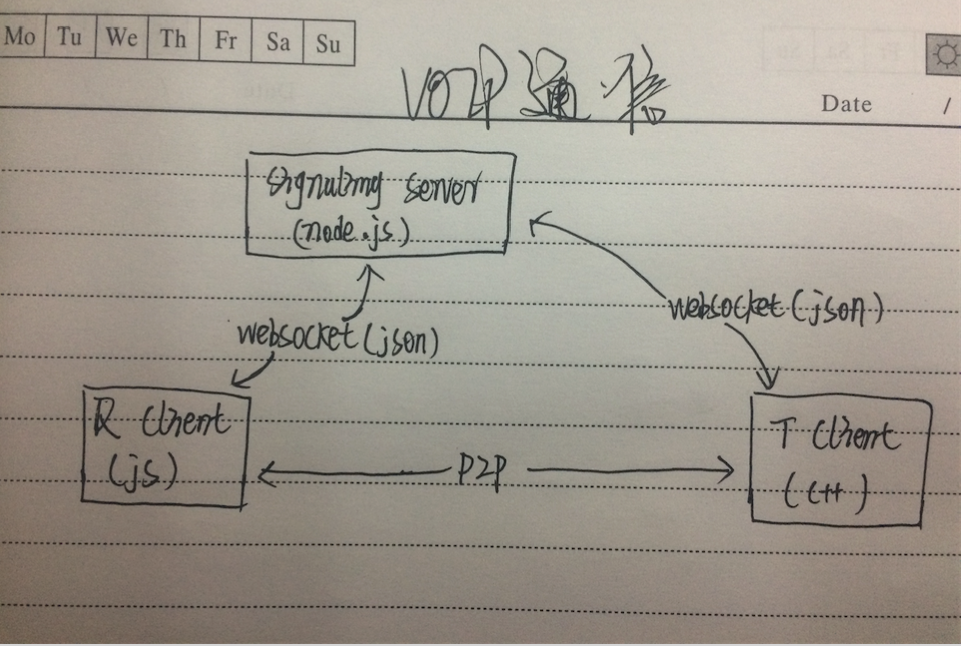 Mo Tu We Th Fr Sa Su
VOIP 通信
Date /
Signaling server
(node.js)
websocket (json)
websocket (json)
R Client
(js)
P2P
T Client
(C++)